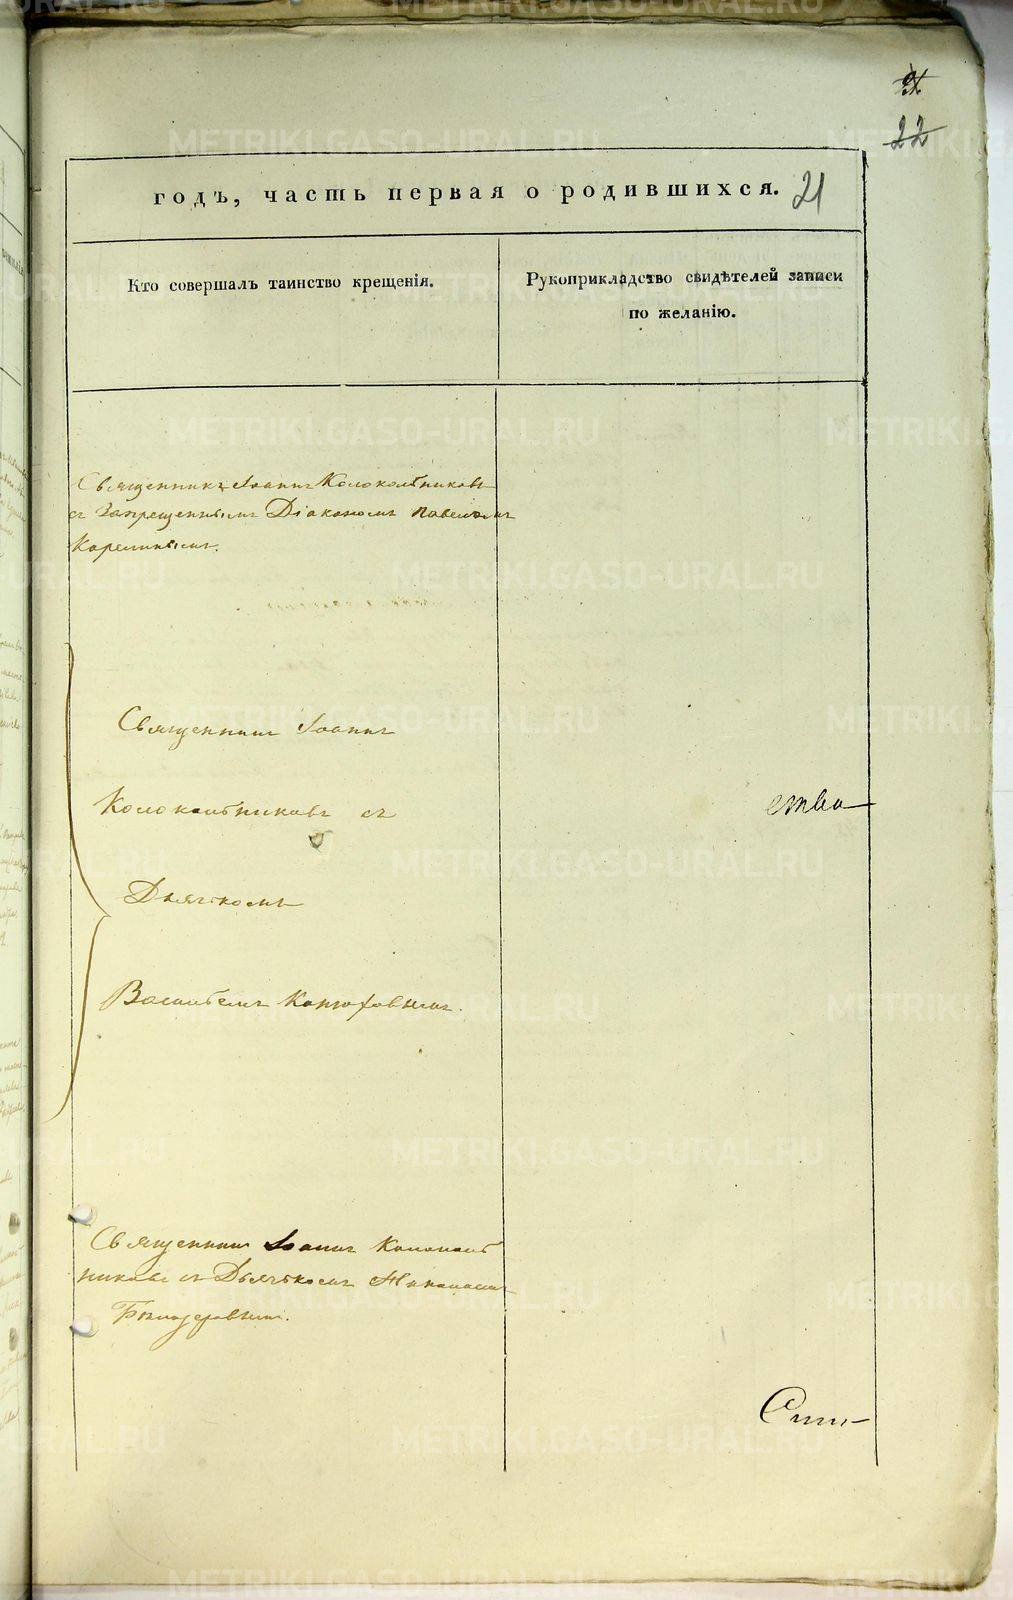 22
годъ, часть первая о родившихся. 21
Кто совершалъ таинство крещенія.
Рукоприкладство свидѣтелей записи
по желанію.
Священникъ Іоаннъ Колокольниковъ
съ Запрещеннымъ Діакономъ Павломъ
Священникъ Іоаннъ
Колокольниковъ съ
ства
Дьячкомъ
Василіемъ Конюховымъ.
Священникъ Іоаннъ Колоколь
никовъ съ Дьячкомъ
METRIKI.GASO-URAL.RU